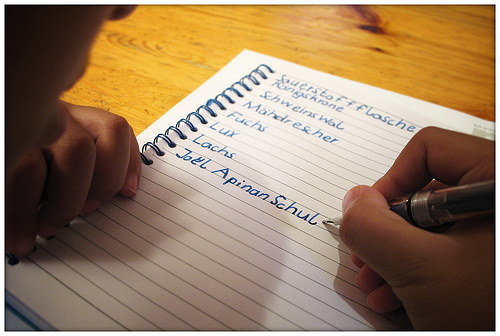 Sauerstoffflasche
Königskrone
Schweinswal
Mähdrescher
Fuchs
Lux
Lachs
Joël Apinan Schul